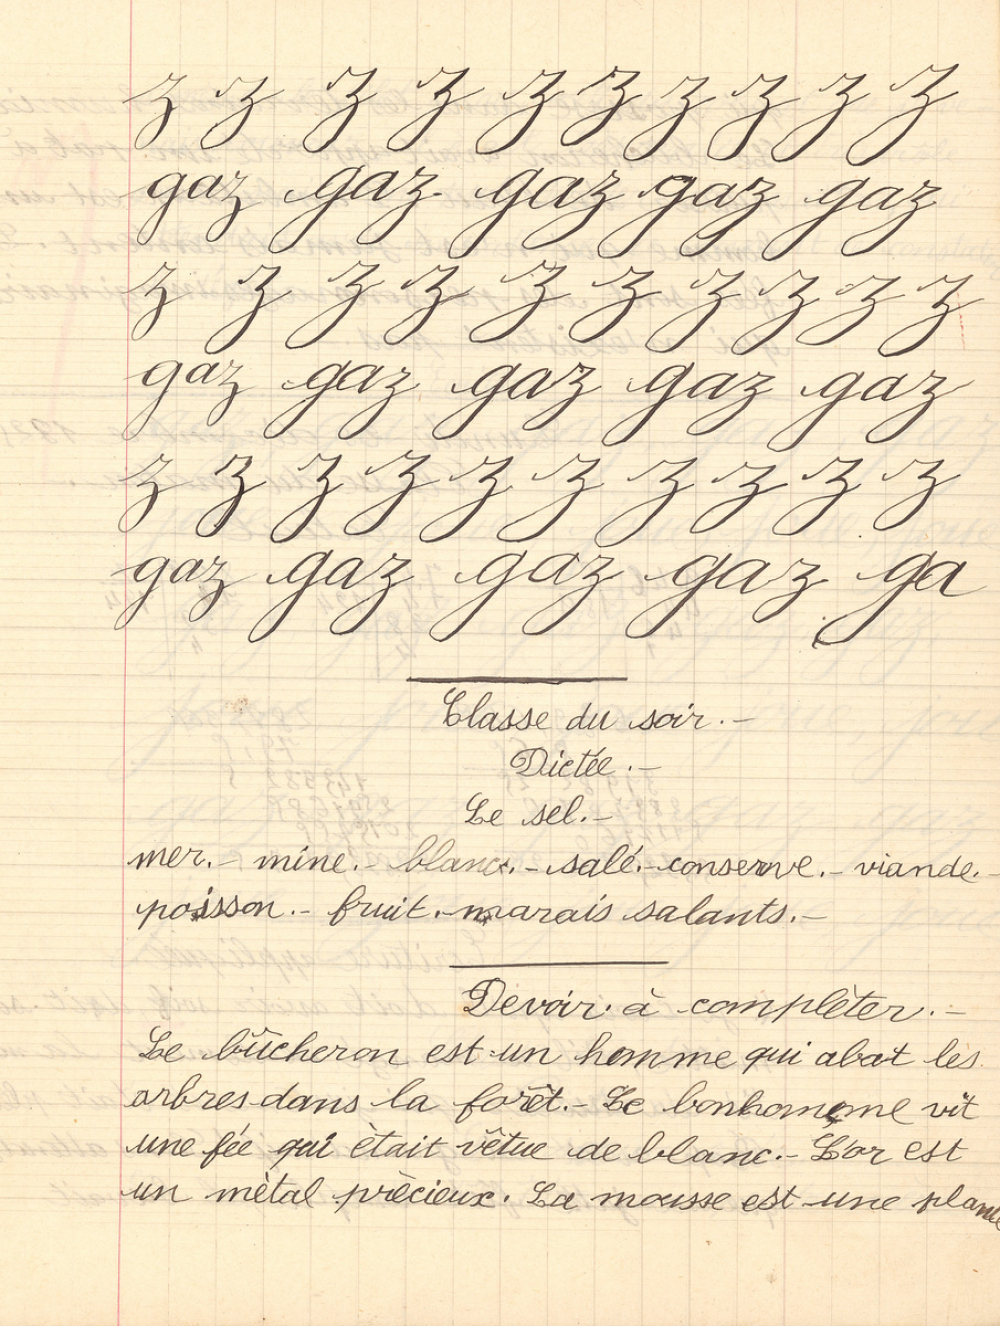 z z z z z z z z z z
gaz gaz gaz gaz gaz
z z z z z z z z z z
gaz gaz gaz gaz gaz
z z z z z z z z z z
gaz gaz gaz gaz ga
Classe du soir.-
Dictée.-
Le sel.-
mer.- mine.- blanc.- salé.- conserve.- viande.-
poisson.- fruit.- marais salants.-
Devoir à complèter.-
Le bûcheron est un homme qui abat les
arbres dans la forêt.- Le bonhomme vit
une fée qui ètait vêtue de blanc.- L'or est
un mètal prècieux. La mousse est une plante